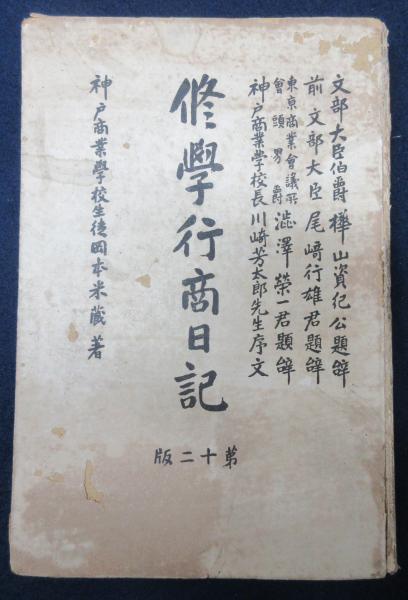 文部大臣伯爵樺山資紀公題辭
前文部大臣尾崎行雄君題辭
東京商業會議所
會頭男爵
澁澤榮一君題辭
神戸商業学校長川崎芳太郎先生序文
修學行商日記
第十二版
神戸商業學校生徒岡本米蔵著